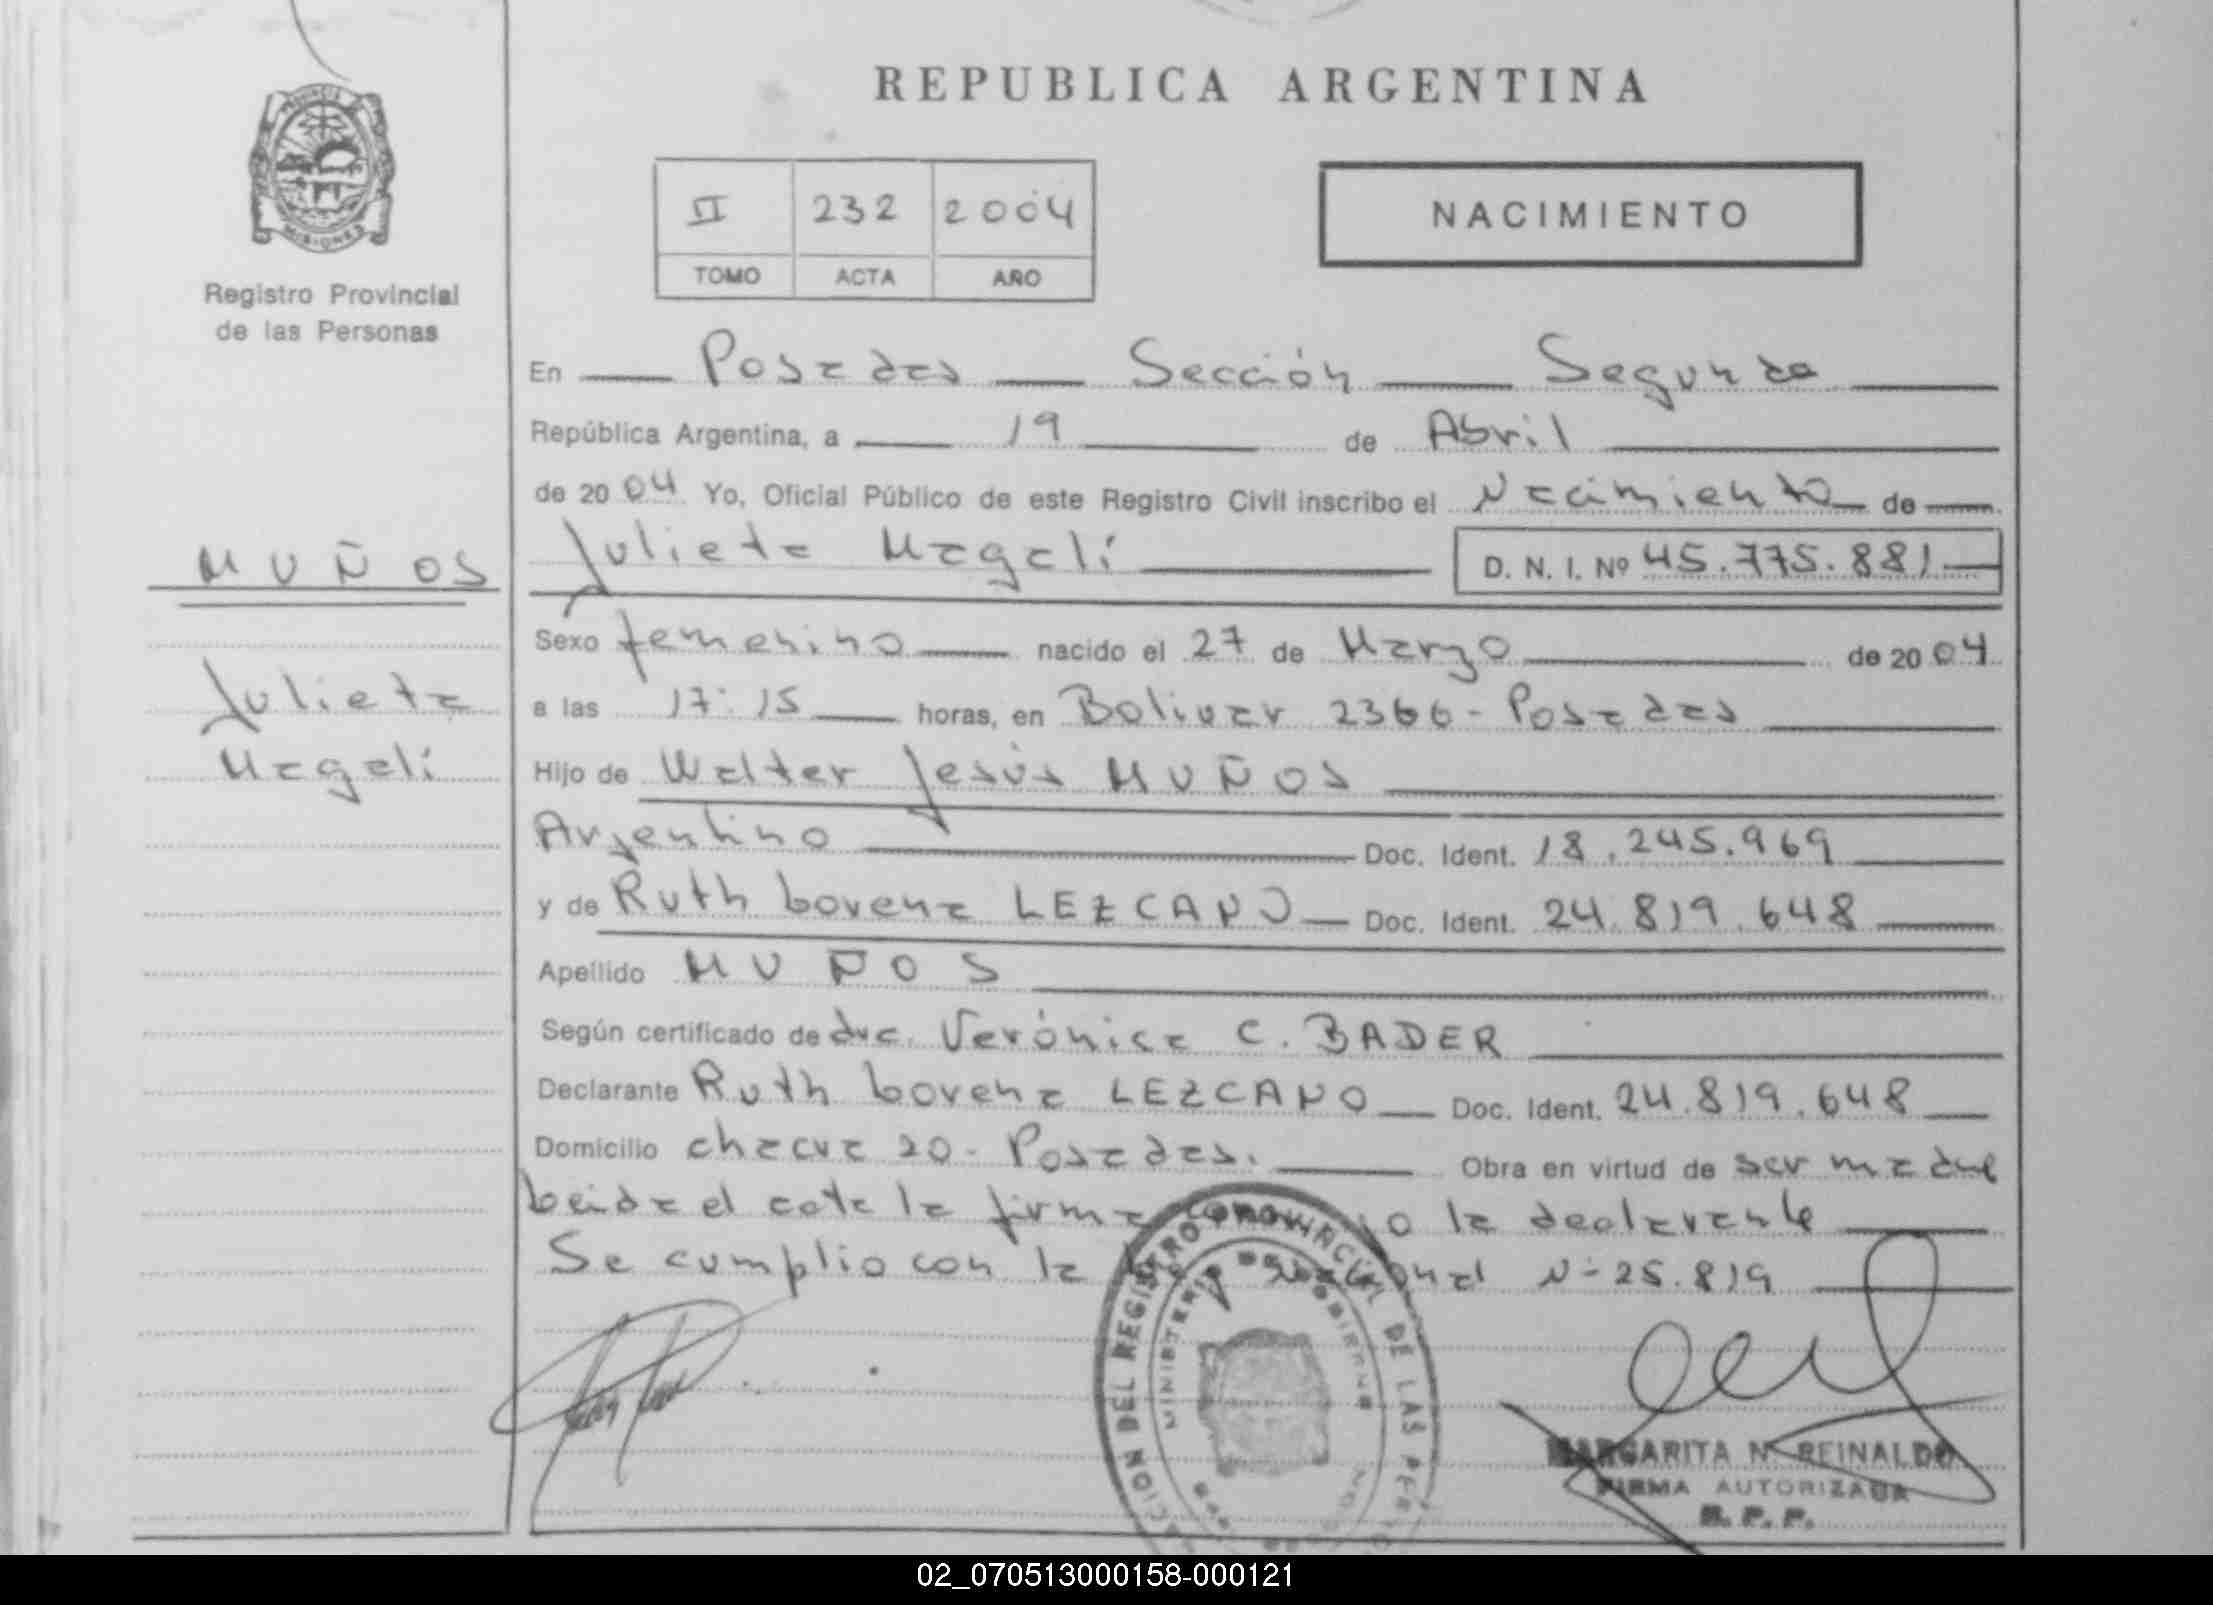 REPUBLICA ARGENTINA
PROVINCIA
MISIONES
Registro Provincial
de las Personas
II 232 2004
TOMO ACTA AÑO
NACIMIENTO
En Posadas Sección Segunda
República Argentina, a 19 de Abril
de 2004 Yo, Oficial Público de este Registro Civil inscribo el Nacimiento de
MUÑOS
Julieta Magalí D. N. I. Nº 45.775.881
Sexo femenino nacido el 27 de Marzo de 2004
Julieta
Magalí
a las 17:15 horas, en Bolivar 2366 - Posadas
Hijo de Walter Jesús MUÑOS
Argentino Doc. Ident. 18.245.969
y de Ruth Lorena LEZCANO Doc. Ident. 24.819.648
Apellido MUÑOS
Según certificado de dra. Verónica C. BADER
Declarante Ruth Lorena LEZCANO Doc. Ident. 24.819.648
Domicilio chacra 20 - Posadas. Obra en virtud de ser madre
Leida el acta la firma la declarante
Se cumplio con la N- 25.819
DEL REGISTRO PROVINCIAL DE LAS
MINISTERIO DE GOBIERNO
MARGARITA N. REINALDO
FIRMA AUTORIZADA
R. P. P.
02_070513000158-000121